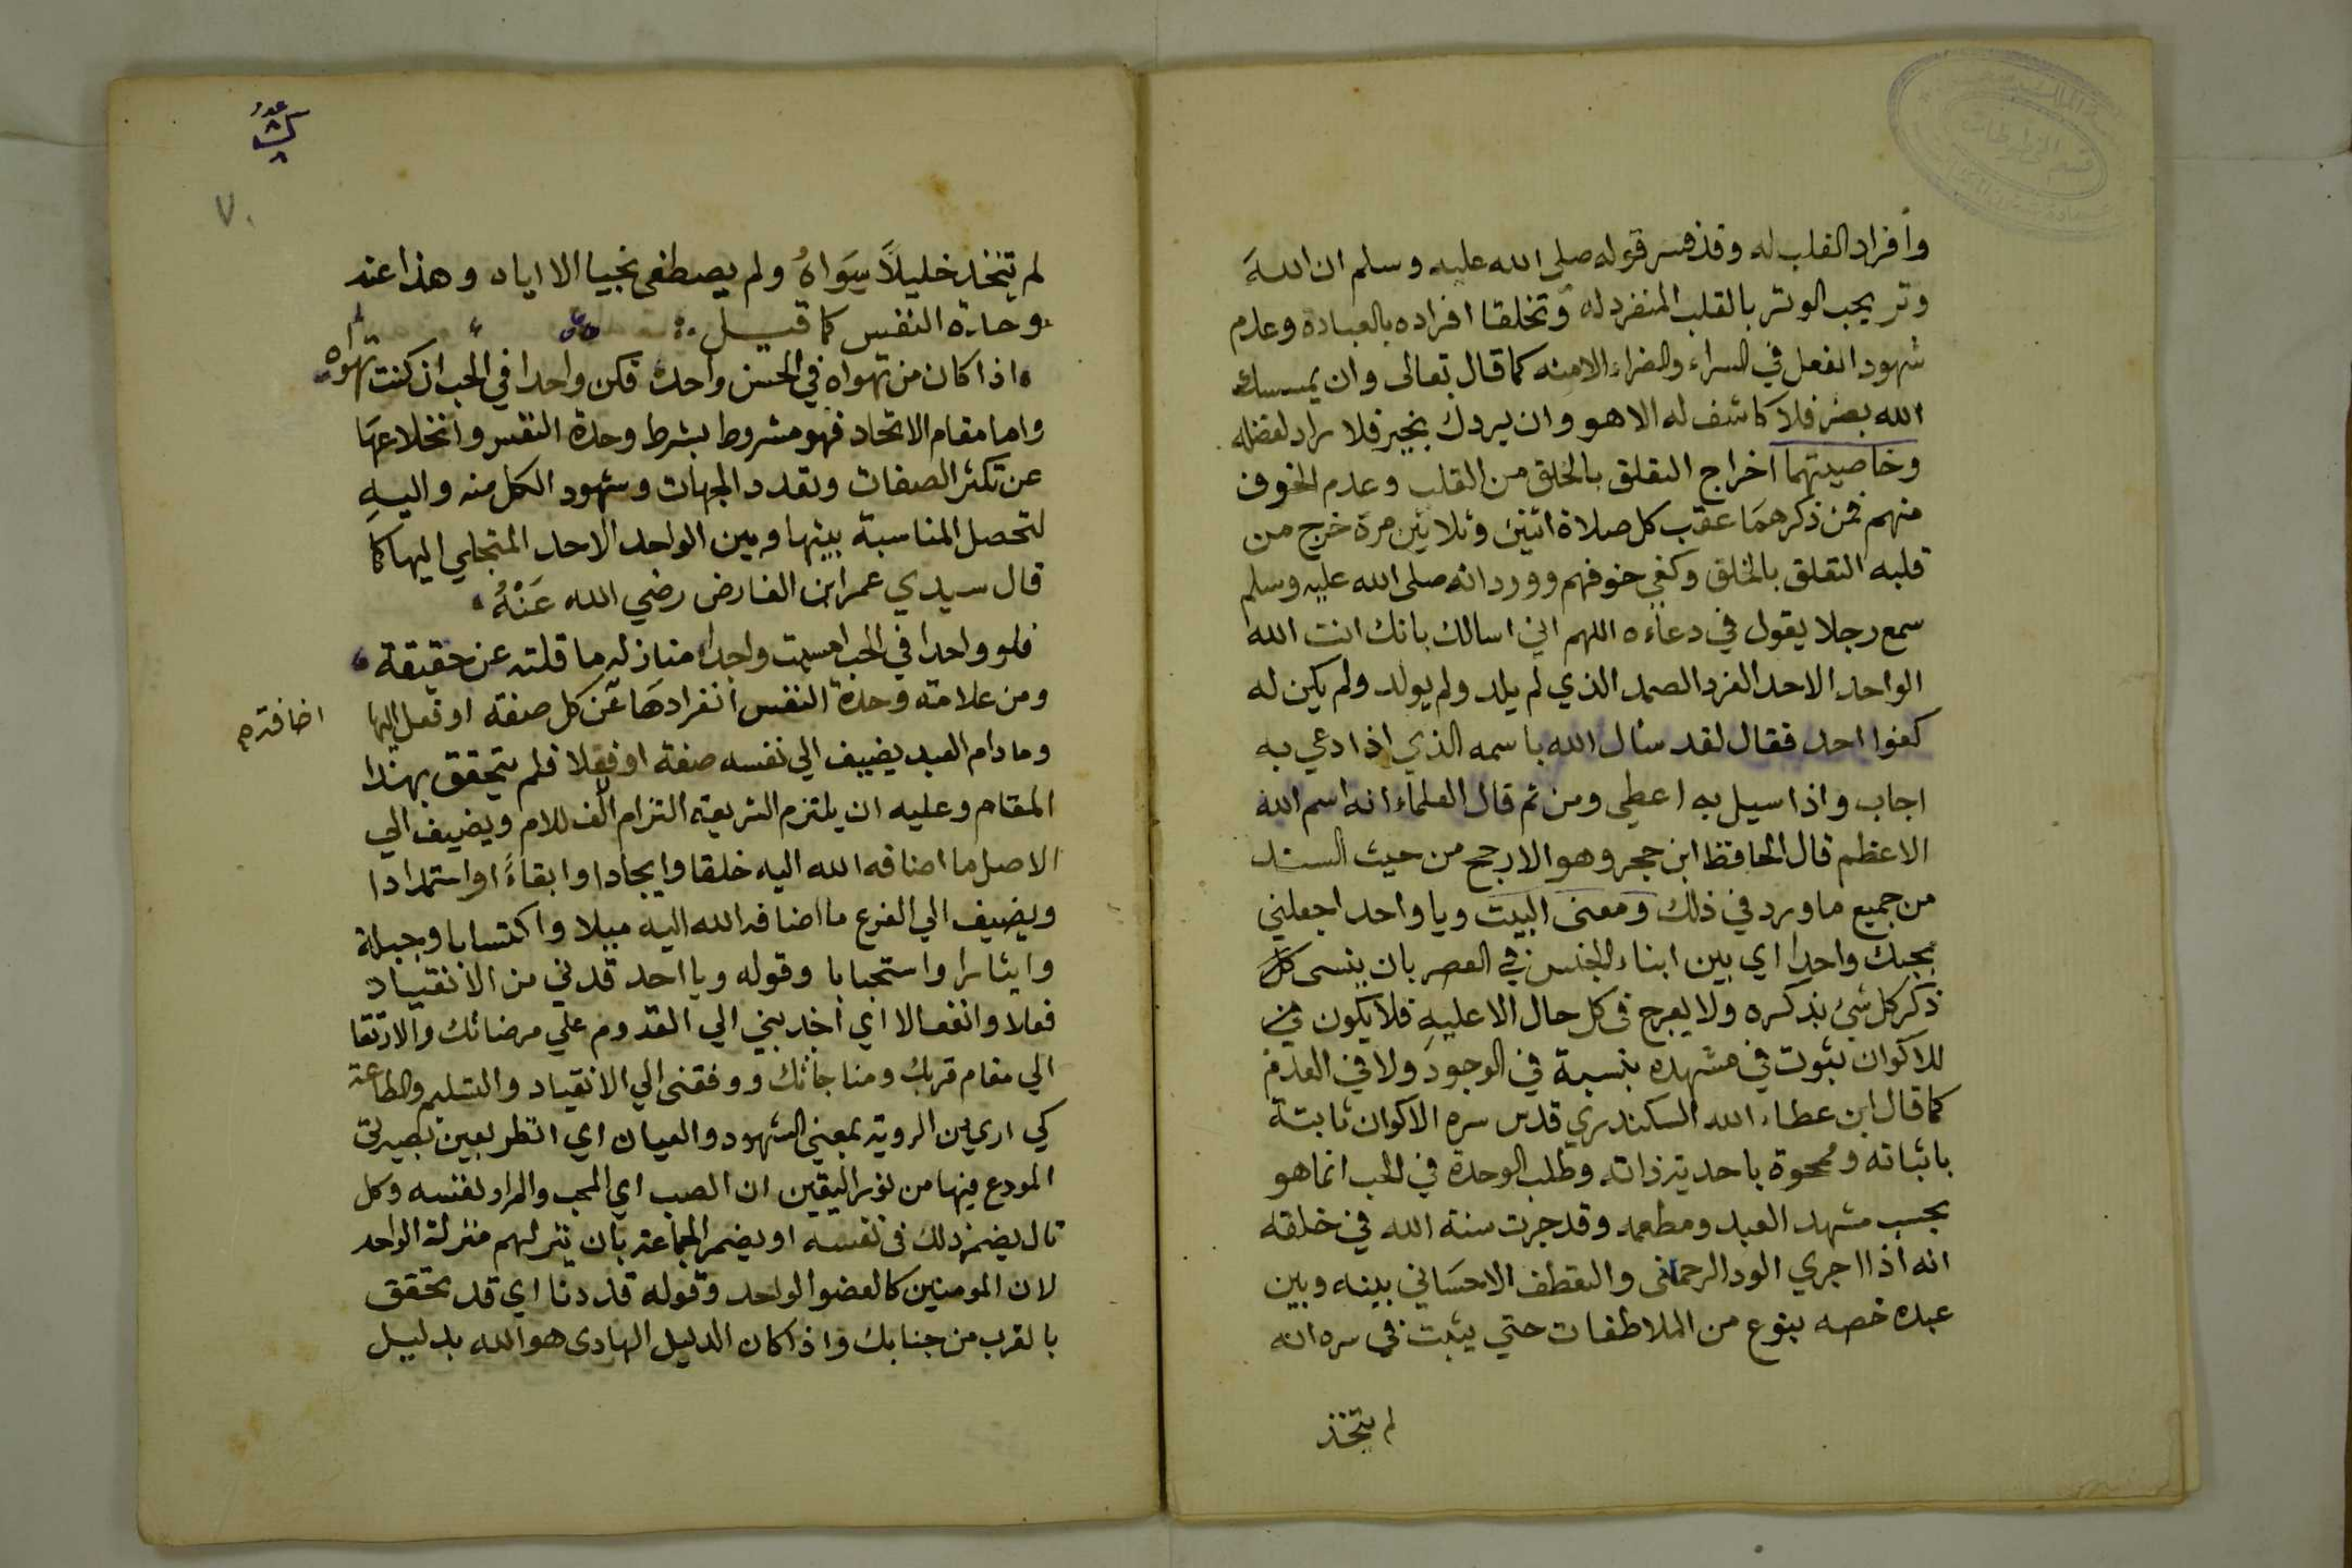 وأفراد القلب له وقد فسر قوله صلى الله عليه وسلم ان اللهَ
وتر يحب الوتر بالقلب المنفرد له وتخلقا افراده بالعبادة وعدم
شهود الفعل في السراء والضراء الامنه كما قال تعالى وان يمسسك
الله بضر فلا كاشف له الا هو وان يردك بخير فلا راد لفضله
وخاصيتهما اخراج التعلق بالخلق من القلب وعدم الخوف
منهم فمن ذكرهما عقب كل صلاة اثنين وثلاثين مرة خرج من
قلبه التعلق بالخلق وكفي خوفهم وورد انه صلى الله عليه وسلم
سمع رجلا يقول في دعاءه اللهم اني اسالك بانك انت الله
الواحد الاحد الفرد الصمد الذي لم يلد ولم يولد ولم يكن له
كفوا احد فقال لقد سئال الله باسمه الذي اذا دعي به
اجاب واذا سيل به اعطي ومن ثم قال العلماء انه اسم الله
الاعظم قال الحافظ ابن حجر وهو الارجح من حيث السند
من جميع ما ورد في ذلك ومعنى البيت ويا واحد اجعلني
بحبك واحدا اي بين ابناء الجنس في العصر بان ينسى كل
ذكر كل شئ بذكره ولا يعرج في كل حال الا عليهِ فلا يكون
للاكوان ثبوت في مشهده بنسبة في الوجود ولا في العدم
كما قال ابن عطاء الله السكندري قدس سره الاكوان ثابتة
باثباته وممحوة باحدية ذاته وطلب الوحدة في الحب انما هو
بحسب مشهد العبد ومطعمه وقد جرت سنة الله في خلقه
انه اذا اجري الود الرحمانى والتعطف الاحسَاني بينه وبين
عبده خصه بنوع من الملاطفات حتي يثبت في سره انه
لم يتخذ
٧٠
لم يتخذ خليلاً سِوَاهُ ولم يصطفى نجيبا الا اياه وهذا عند
وحدة النفس كما قيل
اذا كان من تهواه في الحسن واحدا فكن واحدا في الحب ان كنت تهواه
واما مقام الاتحاد فهو مشروط بشرط وحدة النفس وانخلاعهَا
عن تكثر الصفات وتعدد الجهات وشهود الكل منه واليهِ
لتحصل المناسبة بينها وبين الواحد الاحد المتجلي اليها كما
قال سيدي عمر ابن الفارض رضي الله عَنْهُ
فلو واحدا في الحب امسيت واجدا منازله ما قلته عن حقيقة
ومن علامته وحدة النفس أنفرادهَا عن كل صفة او فعل اليها
اضافته
وما دام العبد يضيف الي نفسه صفة او فعلا فلم يتحقق بهذا
المقام وعليه ان يلتزم الشريعة التزام الف للام ويضيف الي
الاصل ما اضافه الله اليه خلقا وايجادا وابقاءً او استمدادا
ويضيف الي الفرع ما اضافه الله اليه ميلا واكتسابا وجبلة
وايثارا واستجبابا وقوله ويا احد قدني من الانقياد
فعلا وانفعالا اي اجذبني الي القدوم علي مرضاتك والارتقا
الي مقام قربك ومناجاتك ووفقنى الي الانقياد والتسليم والطاعة
كي اري من الروية بمعني الشهود والعيان اي انظر بعين بصيرتى
المودع فيها من نور اليقين ان الصب اي المحب والمراد نفسه وكل
تال يضمر ذلك في نفسه او يضمر الجماعة بان ينزلهم منزلة الواحد
لان المومنين كالعضو الواحد وقوله قد دنا اي قد تحقق
بالقرب من جنابك واذا كان الدليل الهادى هو الله بدليل